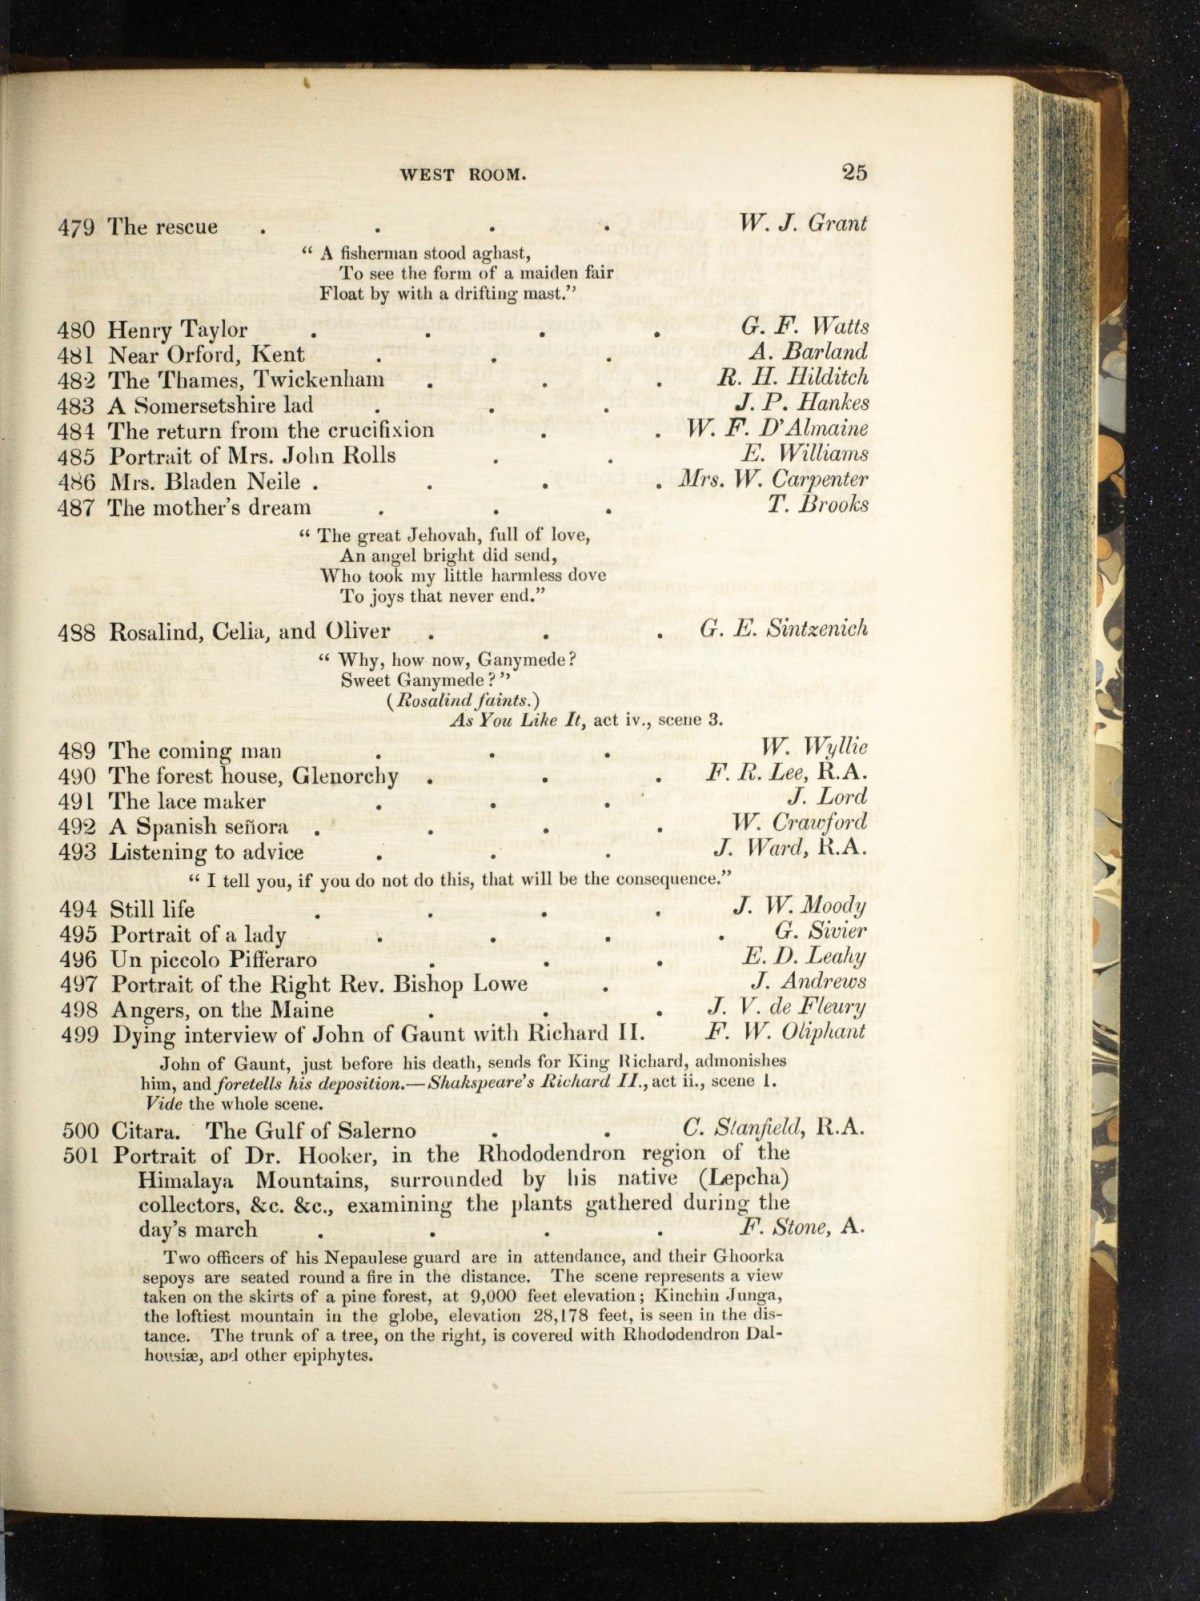 WEST ROOM. 25
479 The rescue . . . . W. J. Grant
“ A fisherman stood aghast,
To see the form of a maiden fair
Float by with a drifting mast.”
480 Henry Taylor . . . . G. F. Watts
481 Near Orford, Kent . . . A. Barland
482 The Thames, Twickenham . . . R. H. Hilditch
483 A Somersetshire lad . . . J. P. Hankes
484 The return from the crucifixion . . W. F. D’Almaine
485 Portrait of Mrs. John Rolls . . E. Williams
486 Mrs. Bladen Neile . . . . Mrs. W. Carpenter
487 The mother’s dream . . . T. Brooks
“ The great Jehovah, full of love,
An angel bright did send,
Who took my little harmless dove
To joys that never end.”
488 Rosalind, Celia, and Oliver . . . G. E. Sintzenich
“ Why, how now, Ganymede?
Sweet Ganymede?”
(Rosalind faints.)
As You Like It, act iv., scene 3.
489 The coming man . . . W. Wyllie
490 The forest house, Glenorchy . . . F. R. Lee, R.A.
491 The lace maker . . . J. Lord
492 A Spanish señora . . . . W. Crawford
493 Listening to advice . . . J. Ward, R.A.
“ I tell you, if you do not do this, that will be the consequence.”
494 Still life . . . . J. W. Moody
495 Portrait of a lady . . . . G. Sivier
496 Un piccolo Pifferaro . . . E. D. Leahy
497 Portrait of the Right Rev. Bishop Lowe . J. Andrews
498 Angers, on the Maine . . . J. V. de Fleury
499 Dying interview of John of Gaunt with Richard II. F. W. Oliphant
John of Gaunt, just before his death, sends for King Richard, admonishes
him, and foretells his deposition.—Shakspeare’s Richard II., act ii., scene 1.
Vide the whole scene.
500 Citara. The Gulf of Salerno . . C. Stanfield, R.A.
501 Portrait of Dr. Hooker, in the Rhododendron region of the
Himalaya Mountains, surrounded by his native (Lepcha)
collectors, &c. &c., examining the plants gathered during the
day’s march . . . . F. Stone, A.
Two officers of his Nepaulese guard are in attendance, and their Ghoorka
sepoys are seated round a fire in the distance. The scene represents a view
taken on the skirts of a pine forest, at 9,000 feet elevation; Kinchin Junga,
the loftiest mountain in the globe, elevation 28,178 feet, is seen in the dis-
tance. The trunk of a tree, on the right, is covered with Rhododendron Dal-
housiæ, and other epiphytes.